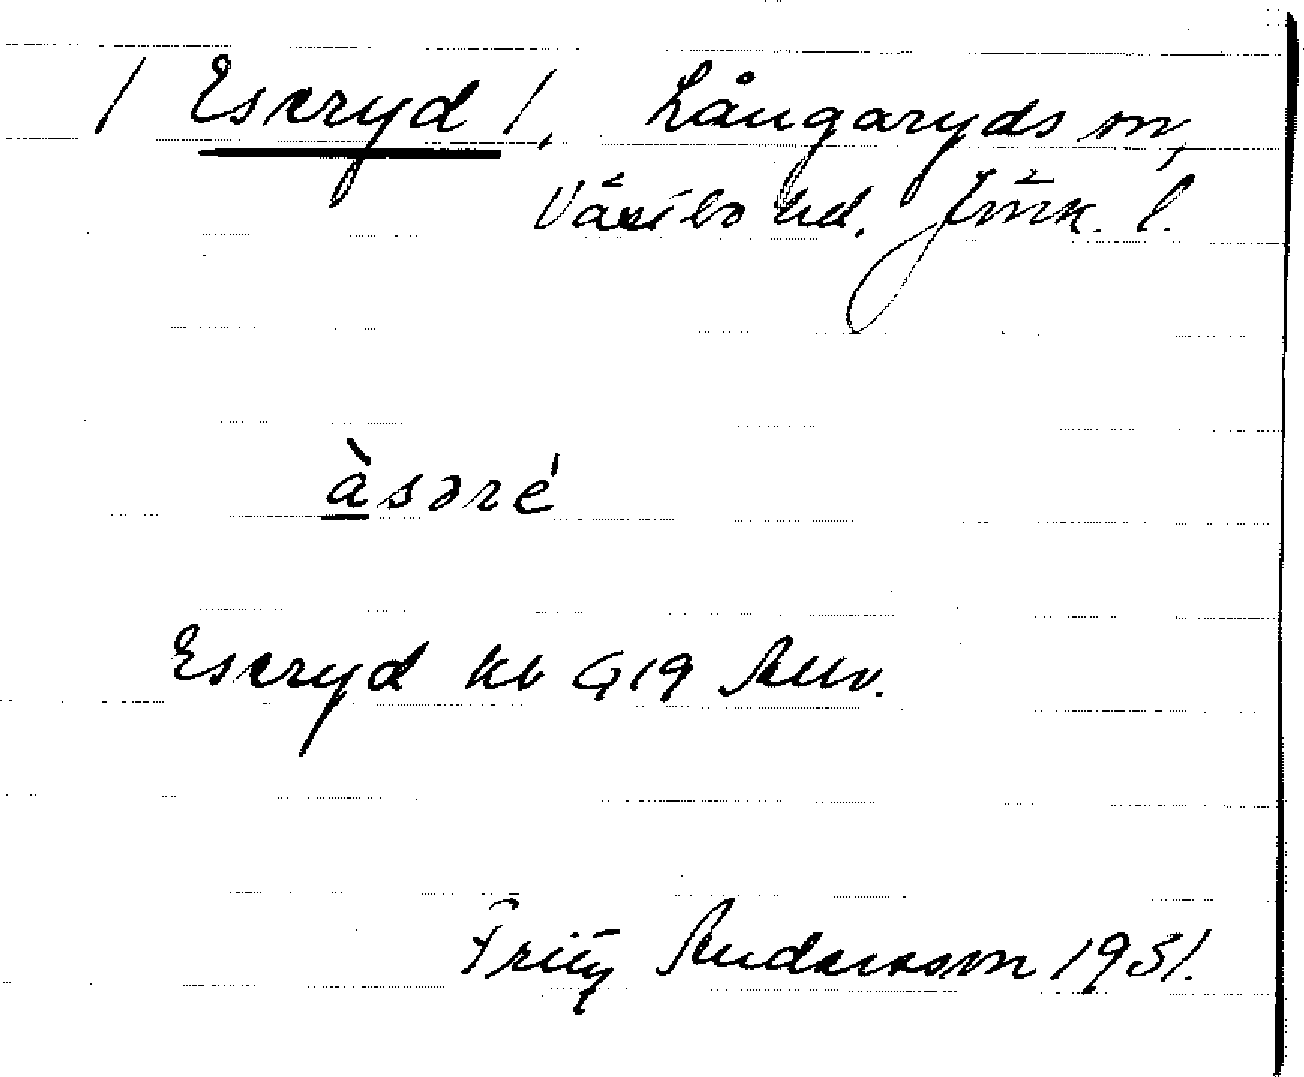 / Eseryd /. Långaryds sn,
Västbo hd. Jönk. l.
àsəré
Eseryd kb G19 Allv.
Fritz Andersson 1951.